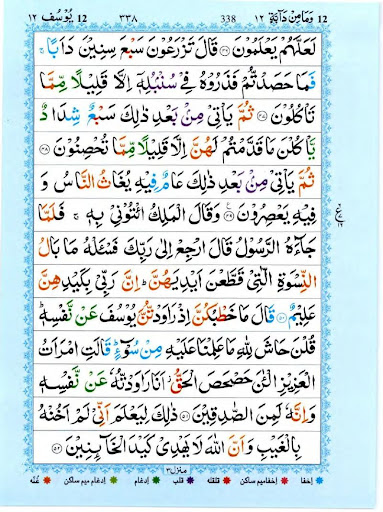 12 وَمَا مِنْ دَآبَّةٍ ١٢ 338 ٣٣٨ 12 يُوْسُف ١٢
لَعَلَّهُمْ يَعْلَمُوْنَ ﴿۴۶﴾ قَالَ تَزْرَعُوْنَ سَبْعَ سِنِيْنَ دَاَبًا ۚ
فَمَا حَصَدْتُّمْ فَذَرُوْهُ فِيْ سُنْۢبُلِهٖٓ اِلَّا قَلِيْلًا مِّمَّا
تَاْكُلُوْنَ ﴿۴۷﴾ ثُمَّ يَاْتِيْ مِنْۢ بَعْدِ ذٰلِكَ سَبْعٌ شِدَادٌ
يَّاْكُلْنَ مَا قَدَّمْتُمْ لَهُنَّ اِلَّا قَلِيْلًا مِّمَّا تُحْصِنُوْنَ ﴿۴۸﴾
ثُمَّ يَاْتِيْ مِنْۢ بَعْدِ ذٰلِكَ عَامٌ فِيْهِ يُغَاثُ النَّاسُ وَ
فِيْهِ يَعْصِرُوْنَ ﴿۴۹﴾ وَقَالَ الْمَلِكُ ائْتُوْنِيْ بِهٖ ۚ فَلَمَّا
جَآءَهُ الرَّسُوْلُ قَالَ ارْجِعْ اِلٰى رَبِّكَ فَسْـَٔلْهُ مَا بَالُ
النِّسْوَةِ الّٰتِيْ قَطَّعْنَ اَيْدِيَهُنَّ ؕ اِنَّ رَبِّيْ بِكَيْدِهِنَّ
عَلِيْمٌ ﴿۵۰﴾ قَالَ مَا خَطْبُكُنَّ اِذْ رَاوَدْتُّنَّ يُوْسُفَ عَنْ نَّفْسِهٖ ؕ
قُلْنَ حَاشَ لِلّٰهِ مَا عَلِمْنَا عَلَيْهِ مِنْ سُوْٓءٍ ؕ قَالَتِ امْرَاَتُ
الْعَزِيْزِ الْـٰٔنَ حَصْحَصَ الْحَقُّ ؗ اَنَا رَاوَدْتُّهٗ عَنْ نَّفْسِهٖ
وَاِنَّهٗ لَمِنَ الصّٰدِقِيْنَ ﴿۵۱﴾ ذٰلِكَ لِيَعْلَمَ اَنِّيْ لَمْ اَخُنْهُ
بِالْغَيْبِ وَاَنَّ اللّٰهَ لَا يَهْدِيْ كَيْدَ الْخَآئِنِيْنَ ﴿۵۲﴾
منزل ٣
اِخفا اِخفامیم ساکن قلقله قلب اِدغام ادغام میم ساکن غُنّه